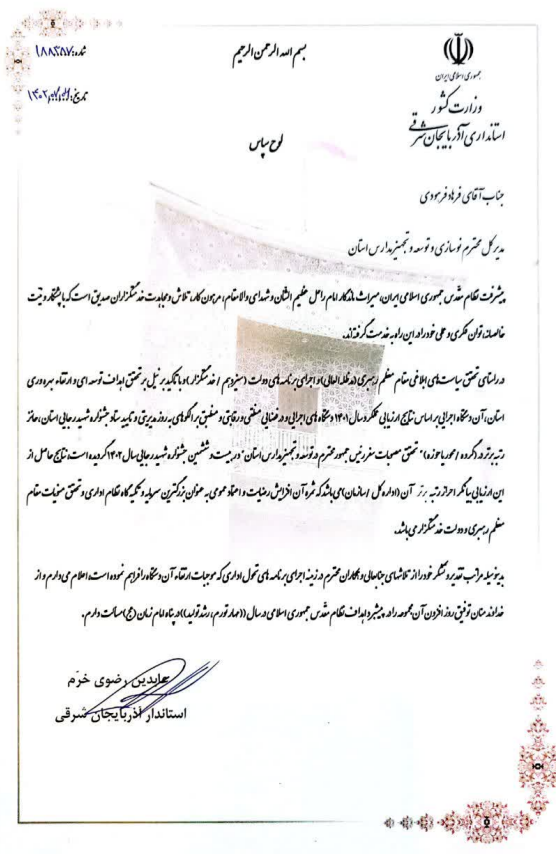 بسم الله الرحمن الرحیم
شماره: ۱۸۸۳۵۷
جمهوری اسلامی ایران
وزارت کشور
استانداری آذربایجان شرقی
لوح سپاس
جناب آقای فرهاد فرمودی
مدیر کل محترم نوسازی و توسعه و تجهیز مدارس استان
پیشرفت نظام مقدس جمهوری اسلامی ایران، میراث ماندگار امام راحل عظیم الشان و شهدای والامقام، مرهون کار، تلاش و مجاهدت خدمتگزاران صدیق است که با پشتکار و نیت
خالصانه، توان فکری و عملی خود را در این راه به خدمت گرفته‌اند.
در راستای تحقق سیاست‌های ابلاغی مقام معظم رهبری (مدظله العالی) و اجرای برنامه های دولت (سیزدهم / خدمتگزار) و با تاکید بر نیل بر تحقق اهداف توسعه ای و ارتقاء بهره وری
استان، آن دستگاه اجرایی بر اساس نتایج ارزیابی عملکرد سال ۱۴۰۱ دستگاه های اجرایی و در فضایی منطقی و رقابتی و منطبق بر الگوهای به روز مدیریتی و تایید ستاد جشنواره شهید رجایی استان، حائز
رتبه برتر در (گروه / محور یا حوزه) " تحقق مصوبات سفر رئیس جمهور محترم در توسعه و تجهیز مدارس استان" در بیست و ششمین جشنواره شهید رجایی سال ۱۴۰۲ گردیده است؛ نتایج حاصل از
این ارزیابی بیانگر احراز رتبه برتر آن (اداره کل / سازمان) می باشد که ثمره آن افزایش رضایت و اعتماد عمومی به عنوان بزرگترین سرمایه و تکیه گاه نظام اداری و تحقق منویات مقام
معظم رهبری و دولت خدمتگزار می باشد.
بدینوسیله مراتب تقدیر و تشکر خود را از تلاشهای جنابعالی و همکاران محترم در زمینه اجرای برنامه های تحول اداری که موجبات ارتقاء آن دستگاه را فراهم نموده است، اعلام می دارم و از
خداوند منان توفیق روز افزون آن مجموعه را در پیشبرد اهداف نظام مقدس جمهوری اسلامی در سال ((مهار تورم، رشد تولید)) در پناه امام زمان (عج) مسالت دارم.
عابدین رضوی خرّم
استاندار آذربایجان شرقی